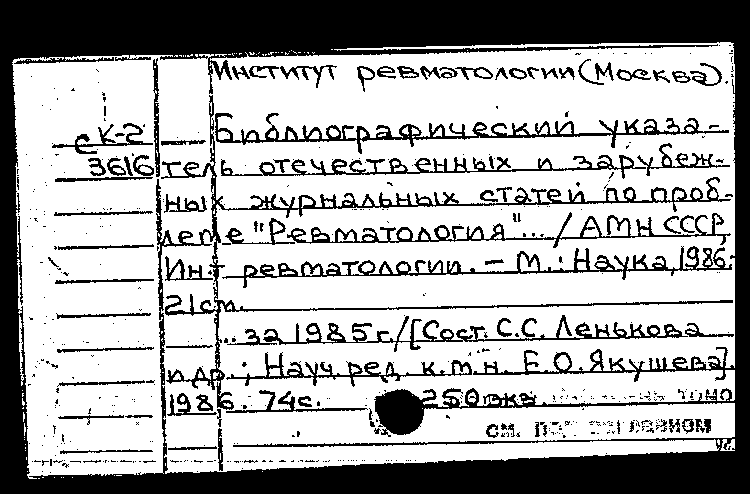 Институт ревматологии (Москва).
с К-2
3616
Библиографический указа-
тель отечественных и зарубеж-
ных журнальных статей по проб-
леме "Ревматология"... / АМН СССР,
Ин-т ревматологии. – М.: Наука, 1986.-
21 см.
... за 1985 г. / [Сост. С.С. Ленькова
и др.; Науч. ред. к.м.н. Е.О. Якушева].
1986. 74 с. 250 экз.
см. под